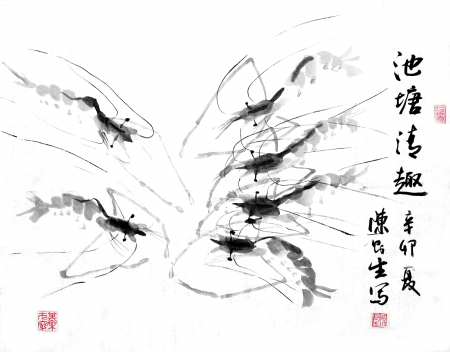 池塘清趣
辛卯夏
陳生写